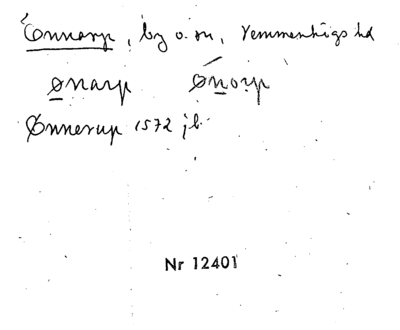 Önnarp, by o. sn, Vemmenhögs hd
ønarp ǿnorp
Ønnerup 1572 jb.
Nr 12401